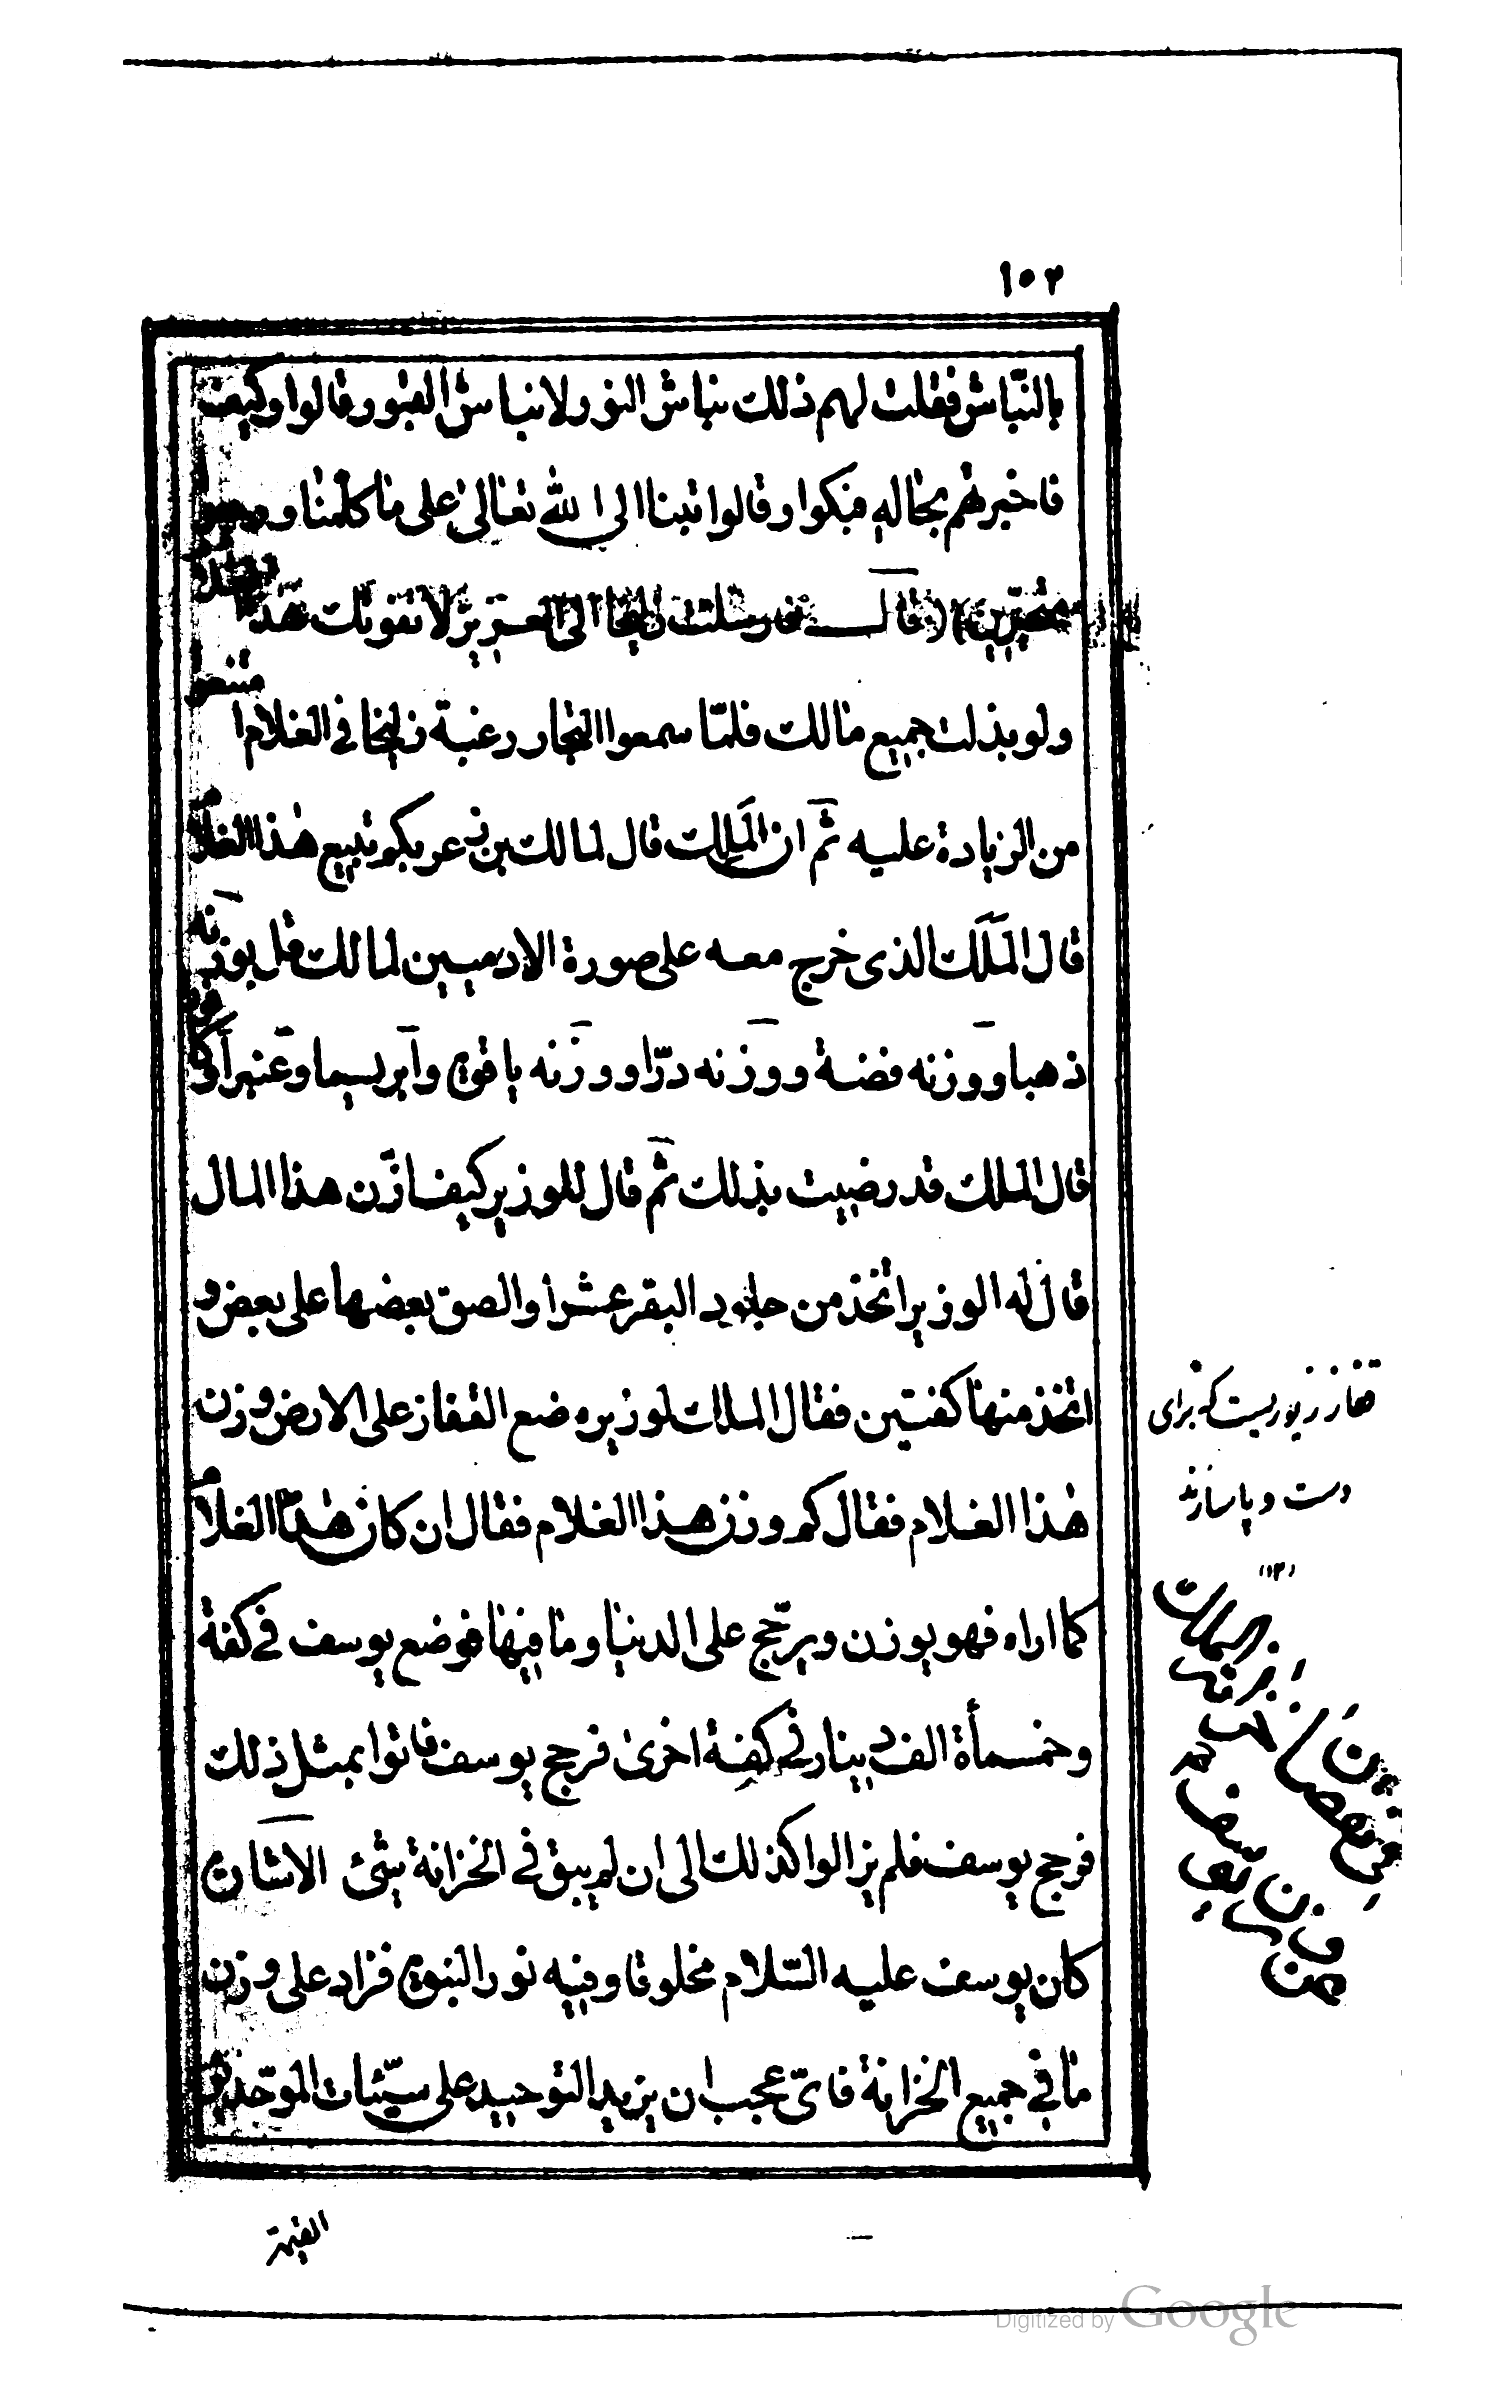 ١٥٢
بالنبّاش فقلت لهم ذلك نباش النور لا نباش القبور قالوا وكيف
فاخبرتهم بحاله فبكوا وقالوا تبنا الى الله تعالى على ما كلمنا و
متحيّرين) (قال فارسلت زليخا الى العزيز لا تفوتك هذا
ولو بذلت جميع مالك فلمّا سمعوا التجار رغبة زليخا في الغلام ا
من الزيادة عليه ثم ان الملك قال لمالك بن زعر بكم تبيع هذا الغلام
قال الملك الذى خرج معه على صورة الادميين لمالك قل بوزنه
ذهبا ووزنه فضة ووزنه درّا ووزنه ياقوتا وابريسما وعنبرا وكافور
قال الملك قد رضيت بذلك ثم قال للوزير كيف ازن هذا المال
قال له الوزير اتخذ من جلود البقر عشرا والصق بعضها على بعض و
اتخذ منها كفتين فقال الملك لوزيره ضع القفاز على الارض وزن
هذا الغلام فقال كم وزن هذا الغلام فقال ان كان هذا الغلام
كما اراه فهو يوزن ويرجح على الدنيا وما فيها فوضع يوسف في كفة
وخمسمأة الف دينار في كفة اخرى فرجح يوسف فاتوا بمثل ذلك
فرجح يوسف فلم يزالوا كذلك الى ان لم يبق في الخزانة شئ الاشارة
كان يوسف عليه السّلام مخلوقا وفيه نور النبوة فزاد على وزن
ما في جميع الخزانة فاىّ عجب ان يزيد التوحيد على سيّئات الموحّدين
قفاز زیوریست که برای
دست و پا سازند
(١٢)
القيمة
Digitized by Google